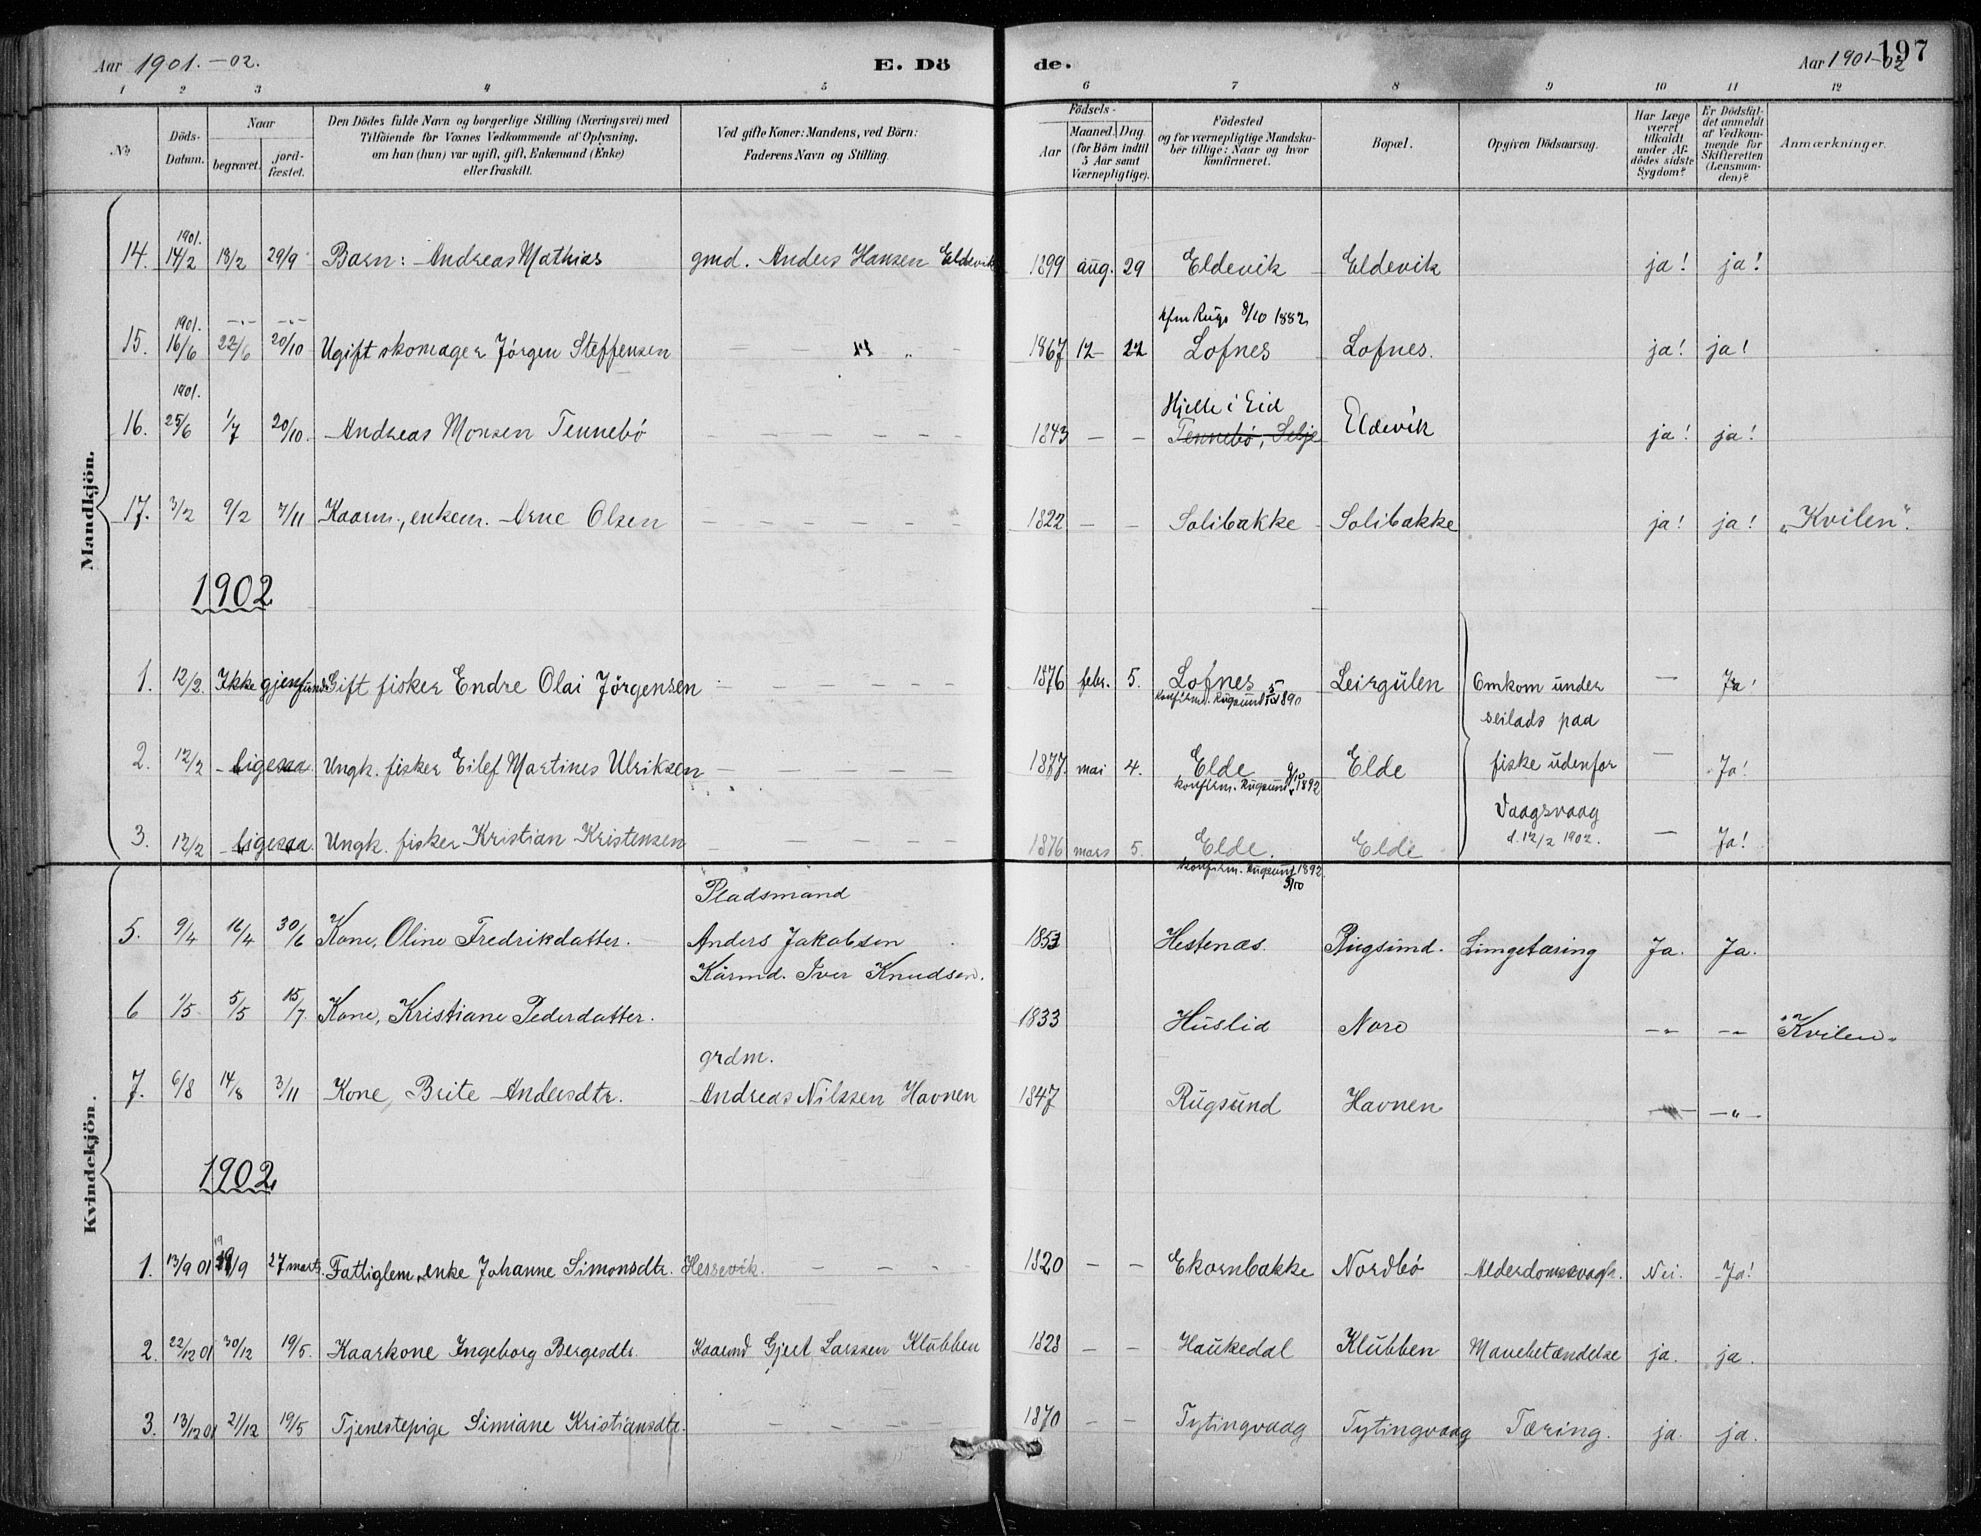 Aar 1901.-02. E. Dö de. Aar 1901-02 197
1 2 3 4 5 6 7 8 9 10 11 12
No
Döds-Datum.
Naar
begravet.
jordfæstet.
Den Dödes fulde Navn og borgerlige Stilling (Næringsvei) med
Tilföiende for Voxnes Vedkommende af Oplysning,
om han (hun) var ugift, gift, Enkemand (Enke)
eller fraskilt.
Ved gifte Koner: Mandens, ved Börn:
Faderens Navn og Stilling.
Födsels-
Aar
Maaned.
Dag.
(for Börn indtil
5 Aar samt
Værnepligtige).
Födested
og for værnepligtige Mandska-
ber tillige: Naar og hvor
konfirmeret.
Bopæl.
Opgiven Dödsaarsag.
Har Læge
været
tilkaldt
under Af-
dödes sidste
Sygdom?
Er Dödsfal-
det anmeldt
af Vedkom-
mende for
Skifteretten
(Lensman-
den)?
Anmærkninger.
Mandkjön.
1901.
14. 14/2 18/2 29/9 Barn: Andreas Mathias gmd. Anders Hansen Eldevik 1899 aug. 29 Eldevik Eldevik ja! ja!
1901. kfm Rugs 8/10 1882
15. 16/6 22/6 20/10 Ugift skomager Jörgen Steffensen 1867 12 22 Lofnes Lofnes. ja! ja!
1901. Hjelle i Eid
16. 25/6 1/7 20/10. Andreas Monsen Tennebö 1843 Tennebö, Selje Eldevik ja! ja!
17. 3/2 9/2 7/11 Kaarm., enkem. Arne Olsen 1822 Solibakke Solibakke ja! ja! "Kvilen".
1902
1. 12/2. Ikke gjenfunden Gift fisker Endre Olai Jörgensen 1876 febr. 5. Lofnes Leirgulen Omkom under — Ja!
konfirm. Rugsund 5/10 1890
seilads paa
2. 12/2 ligesaa. Ungk. fisker Eilef Martines Ulriksen 1877 mai 4. Elde Elde fiske udenfor — Ja!
konfirm. Rugsund 9/10 1892
Vaagsvaag
3. 12/2 ligesaa. Ungk. fisker Kristian Kristensen 1876 mars 5. Elde. Elde d. 12/2 1902. — Ja!
konfirm. Rugsund 1892
9/10
Kvindekjön.
Pladsmand
5. 9/4 16/4 30/6 Kone, Oline Fredrikdatter. Anders Jakobsen 1853 Hestenæs. Rugsund. Lungetæring Ja. Ja.
Kårmd. Iver Knudsen.
6 1/5 5/5 15/7. Kone, Kristiane Pederdatter. 1833 Huslid Nore -"- -"- "Kvilen"
grdm.
7. 6/8 14/8 3/11 Kone, Brite Andersdtr. Andreas Nilssen Havnen 1847 Rugsund Havnen -"- -"-
1902
1. 13/9 01 19/9 27 marts. Fattiglem, enke Johanne Simonsdtr. Hessevik. 1820 Ekornbakke Nordbö Alderdomssvagh. Nei. Ja!
2. 22/12 01 30/12 19/5. Kaarkone Ingeborg Bergesdtr. Kaarmd Gjert Larssen Klubben 1828 Haukedal Klubben Mavebetændelse ja. ja.
3. 13/12 01 21/12 19/5 Tjenestepige Simiane Kristiansdtr. 1870 Tytingvaag Tytingvaag Tæring. ja. ja.